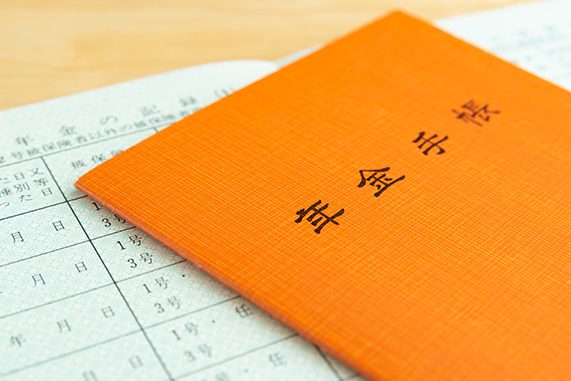 年金手帳
年金の記録(1)
号被保険者以外の被保険者
被保険
た日又
種別等
った日
月 日
1号・
3号
月 日
1号・
3号
月 日
1号・
3号
年 月 日
1号・任
3号
1号・任